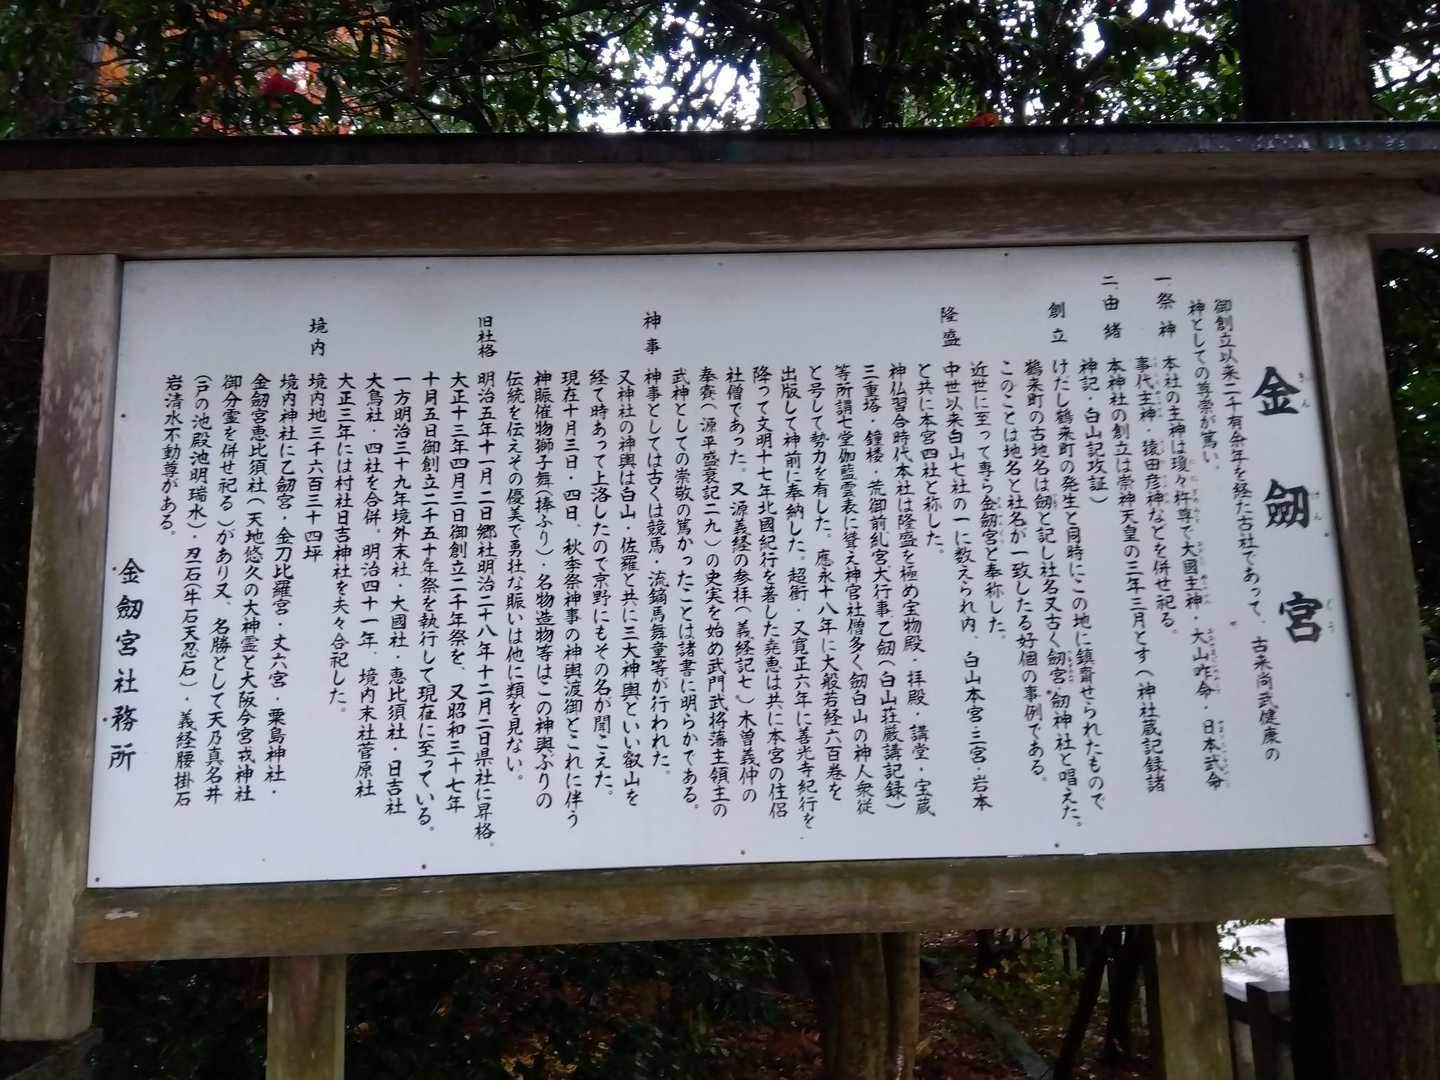 金劔宮
御創立以来二千有余年を経た古社であって、古来尚武健康の
神としての尊崇が篤い。
一.祭神 本社の主神は瓊々杵尊で大國主神・大山咋命・日本武命
事代主神・猿田彦神などを併せ祀る。
二.由緒 本神社の創立は崇神天皇の三年三月とす(神社蔵記録諸
神記・白山記攷証)
創立 けだし鶴来町の発生と同時にこの地に鎮齋せられたもので
鶴来町の古地名は劔と記し社名又古く劔宮・劔神社と唱えた。
このことは地名と社名が一致したる好個の事例である。
近世に至って専ら金劔宮と奉称した。
隆盛 中世以来白山七社の一に数えられ内、白山本宮・三宮・岩本
と共に本宮四社と称した。
神仏習合時代本社は隆盛を極め宝物殿・拝殿・講堂・宝蔵
三重塔・鐘楼・荒御前糺宮大行事乙劔(白山荘厳講記録)
等所謂七堂伽藍雲表に聳え神官社僧多く劔白山の神人衆徒
と号して勢力を有した。應永十八年に大般若経六百巻を
出版して神前に奉納した。超衝・又寛正六年に善光寺紀行を・
降って文明十七年北國紀行を著した尭恵は共に本宮の住侶
社僧であった。又源義経の参拝(義経記七)木曽義仲の
奉賽(源平盛衰記二九)の史実を始め武門武将藩主領主の
武神としての崇敬の篤かったことは諸書に明らかである。
神事 神事としては古くは競馬・流鏑馬舞童等が行われた。
又神社の神輿は白山・佐羅と共に三大神輿といい叡山を
経て時あって上洛したので京野にもその名が聞こえた。
現在十月三日・四日、秋季祭神事の神輿渡御とこれに伴う
神賑催物獅子舞(棒ふり)・名物造物等はこの神輿ぶりの
伝統を伝えその優美で勇壮な賑いは他に類を見ない。
旧社格 明治五年十一月二日郷社明治二十八年十二月二日県社に昇格。
大正十三年四月三日御創立二千年祭を、又昭和三十七年
十月五日御創立二千五十年祭を執行して現在に至っている。
一方明治三十九年境外末社・大國社・恵比須社・日吉社
大鳥社・四社を合併。明治四十一年、境内末社菅原社
大正三年には村社日吉神社を夫々合祀した。
境内 境内地三千六百三十四坪
境内神社に乙劔宮・金刀比羅宮・丈六宮・粟島神社・
金劔宮恵比須社(天地悠久の大神霊と大阪今宮戎神社
御分霊を併せ祀る)があり又、名勝として天乃真名井
(戸の池殿池明瑞水)・忍石(牛石天忍石)・義経腰掛石
岩清水不動尊がある。
金劔宮社務所